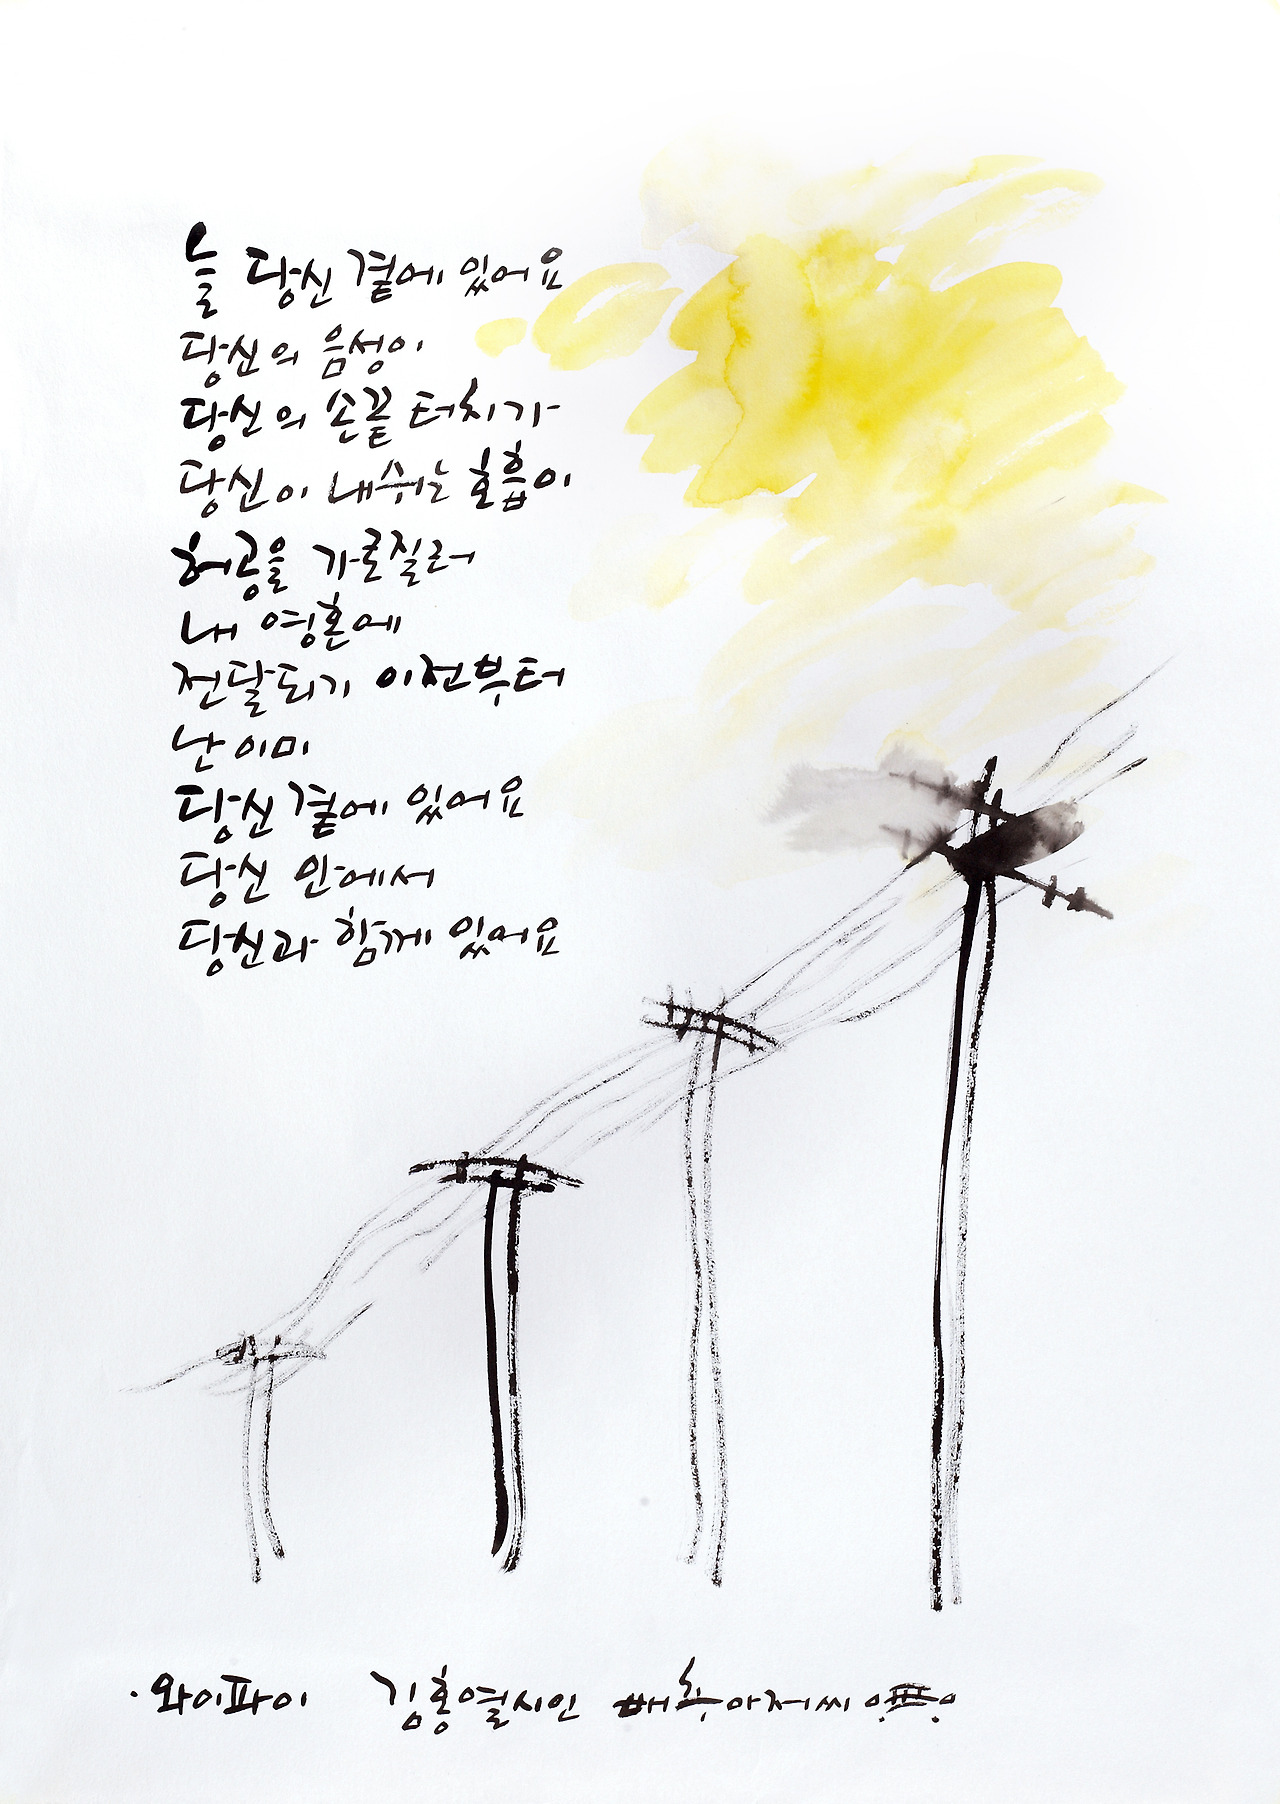 늘 당신 곁에 있어요
당신의 음성이
당신의 손끝 터치가
당신이 내쉬는 호흡이
허공을 가로질러
내 영혼에
전달되기 이전부터
난 이미
당신 곁에 있어요
당신 안에서
당신과 함께 있어요
·와이파이 김홍열시인 배추아저씨